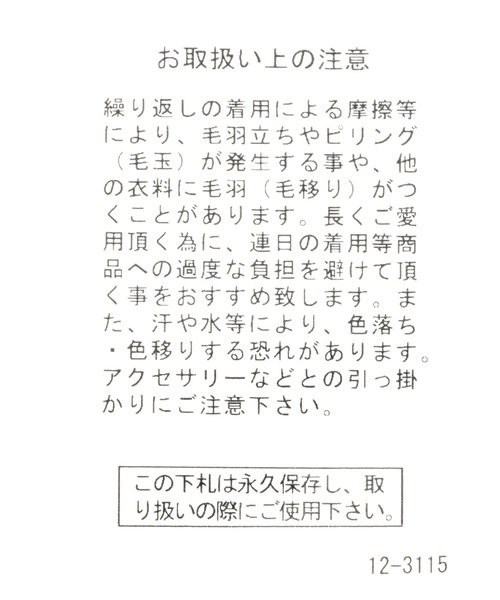 お取扱い上の注意
繰り返しの着用による摩擦等
により、毛羽立ちやピリング
（毛玉）が発生する事や、他
の衣料に毛羽（毛移り）がつ
くことがあります。長くご愛
用頂く為に、連日の着用等商
品への過度な負担を避けて頂
く事をおすすめ致します。ま
た、汗や水等により、色落ち
・色移りする恐れがあります。
アクセサリーなどとの引っ掛
かりにご注意下さい。
この下札は永久保存し、取
り扱いの際にご使用下さい。
12-3115